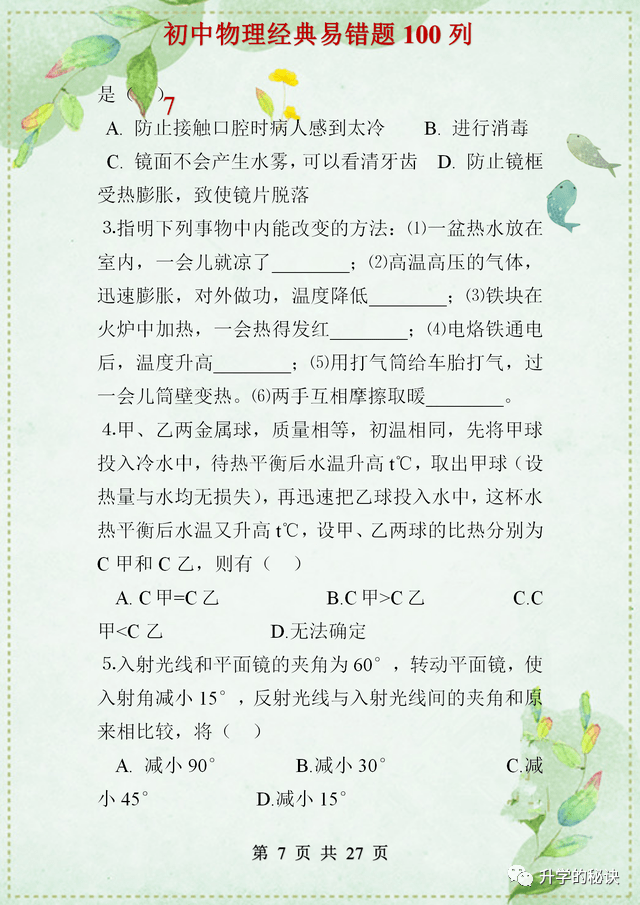 初中物理经典易错题 100 列
是（ ）
7
A. 防止接触口腔时病人感到太冷 B. 进行消毒
C. 镜面不会产生水雾，可以看清牙齿 D. 防止镜框
受热膨胀，致使镜片脱落
3.指明下列事物中内能改变的方法：⑴一盆热水放在
室内，一会儿就凉了________；⑵高温高压的气体，
迅速膨胀，对外做功，温度降低________；⑶铁块在
火炉中加热，一会热得发红________；⑷电烙铁通电
后，温度升高________；⑸用打气筒给车胎打气，过
一会儿筒壁变热。⑹两手互相摩擦取暖________。
4.甲、乙两金属球，质量相等，初温相同，先将甲球
投入冷水中，待热平衡后水温升高 t℃，取出甲球（设
热量与水均无损失），再迅速把乙球投入水中，这杯水
热平衡后水温又升高 t℃，设甲、乙两球的比热分别为
C 甲和 C 乙，则有（ ）
A. C 甲=C 乙 B.C 甲>C 乙 C.C
甲<C 乙 D.无法确定
5.入射光线和平面镜的夹角为 60°，转动平面镜，使
入射角减小 15°，反射光线与入射光线间的夹角和原
来相比较，将（ ）
A. 减小 90° B.减小 30° C.减
小 45° D.减小 15°
第 7 页 共 27 页
升学的秘诀